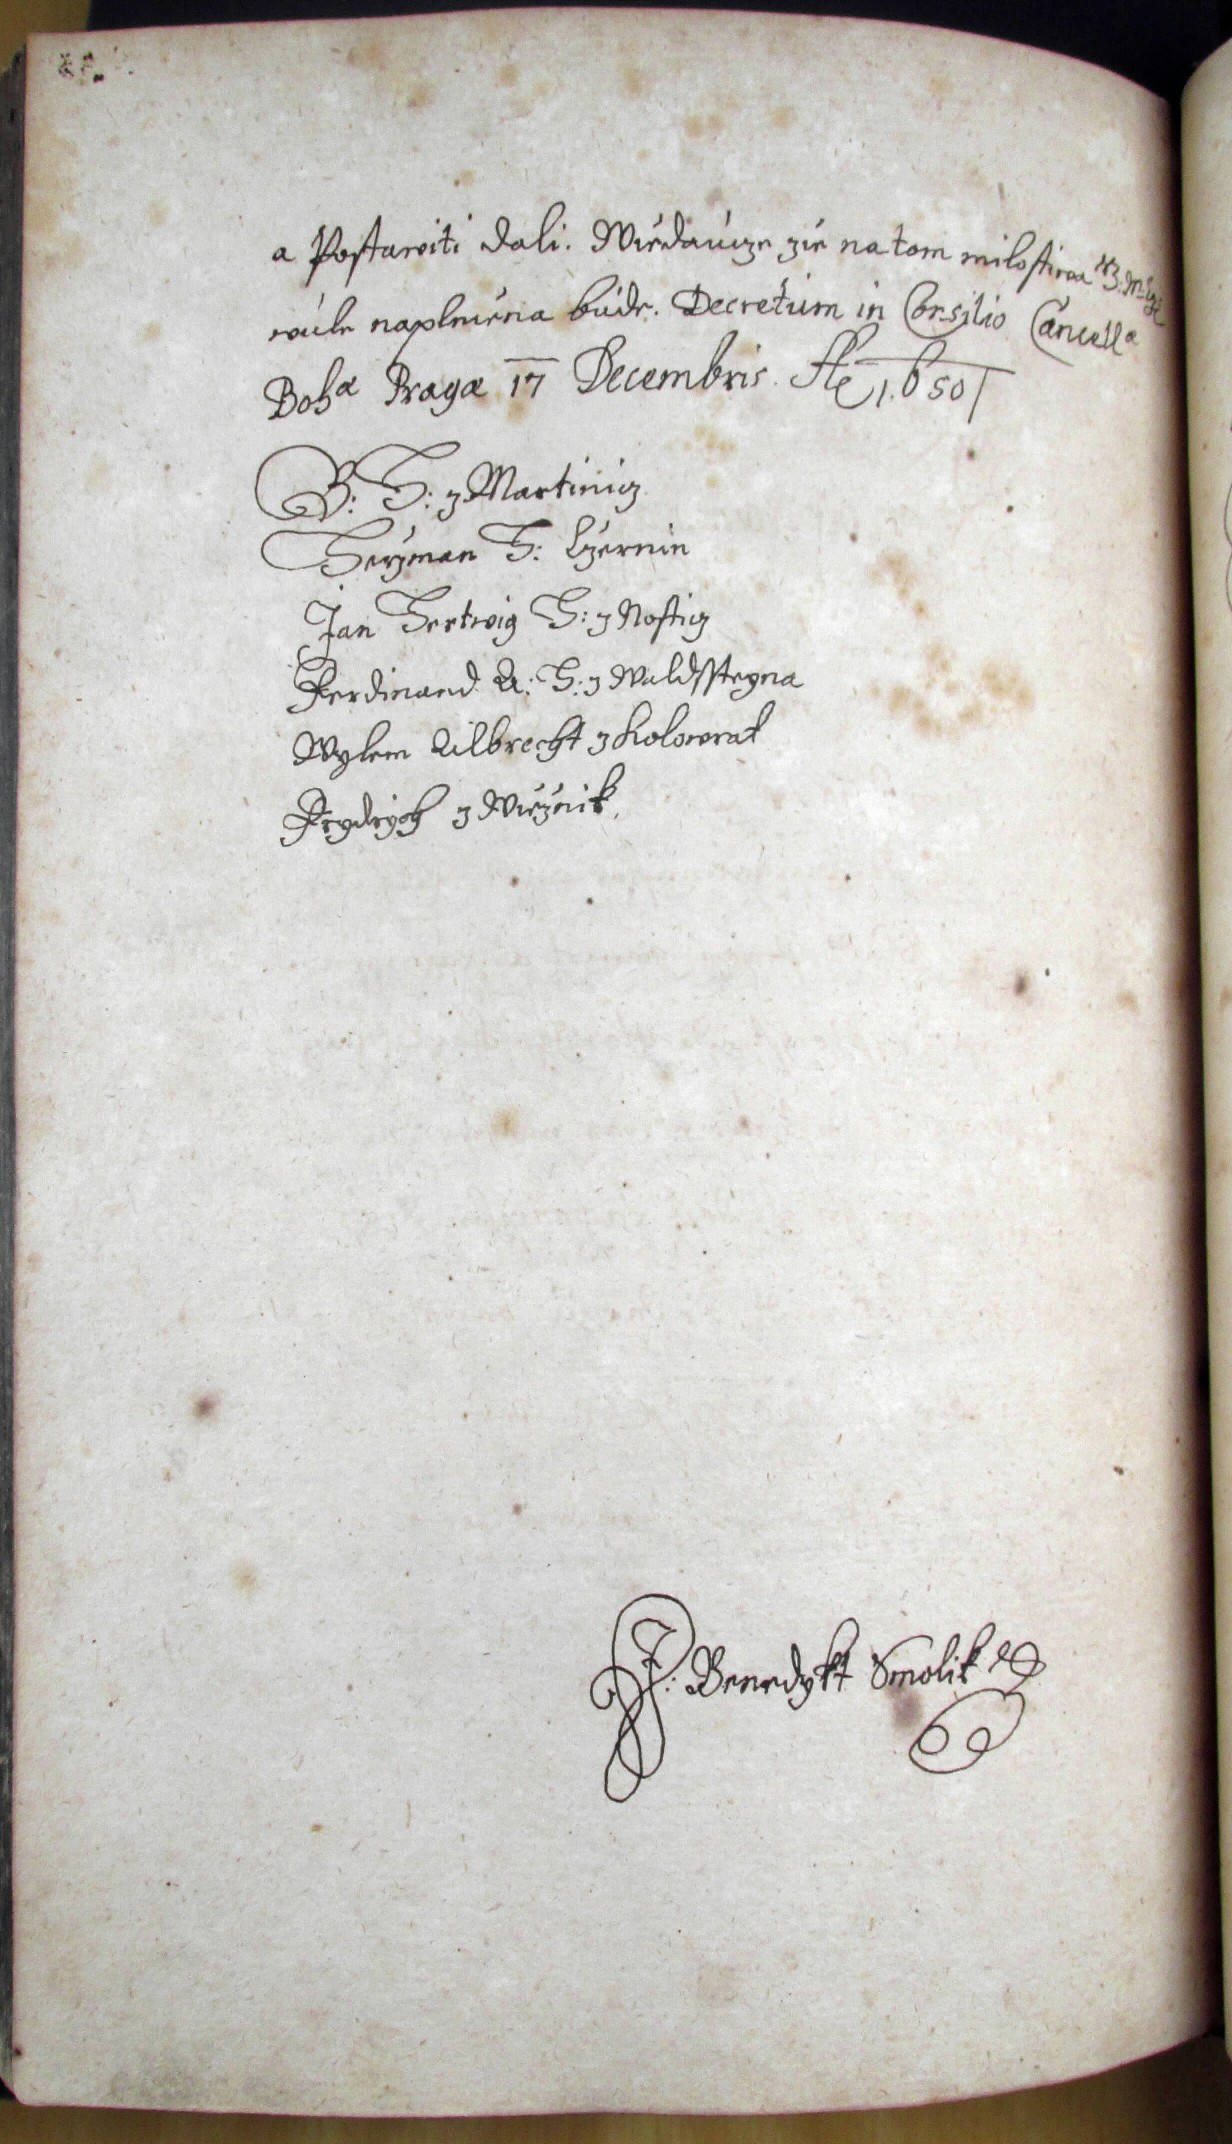 a Postawiti dali. Wiedauce zie na tom milostiwa
wule naplniena bude. Decretum in Consilio Cancellæ
Bohæ Pragæ 17 Decembris 1650
B: H: z Martinicz
Heřman H: Czernin
Jan Hertwig H: z Nosticz
Ferdinand A: H: z Waldsstegna
Wylem Albrecht z Kolowrat
Frydrych z Wieznik
J: Benedykt Smolik